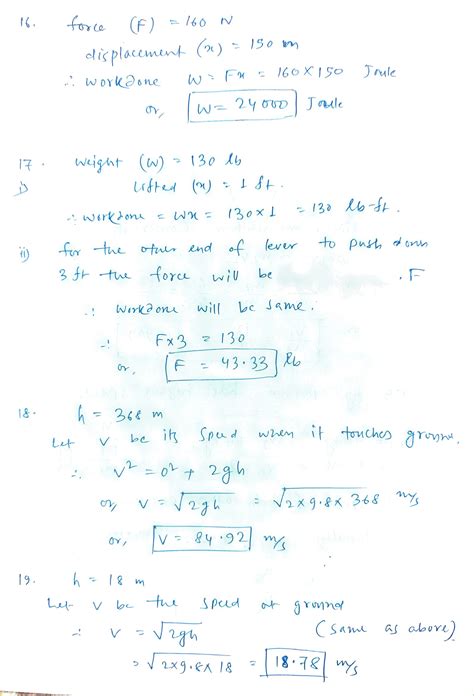 16. force (F) = 160 N
displacement (x) = 150 m
∴ workdone W = Fx = 160×150 Joule
or, W = 24000 Joule
17. weight (w) = 130 lb
i) Lifted (x) = 1 ft.
∴ workdone = wx = 130×1 = 130 lb-ft.
ii) for the other end of lever to push down
3 ft the force will be . F
∴ workdone will be same.
∴ F×3 = 130
or, F = 43.33 lb
18. h = 368 m
Let v be its speed when it touches ground.
∴ v² = 0² + 2gh
or, v = √2gh = √2×9.8×368 m/s
or, v = 84.92 m/s
19. h = 18 m
Let v be the speed at ground
∴ v = √2gh (same as above)
= √2×9.8×18 = 18.78 m/s